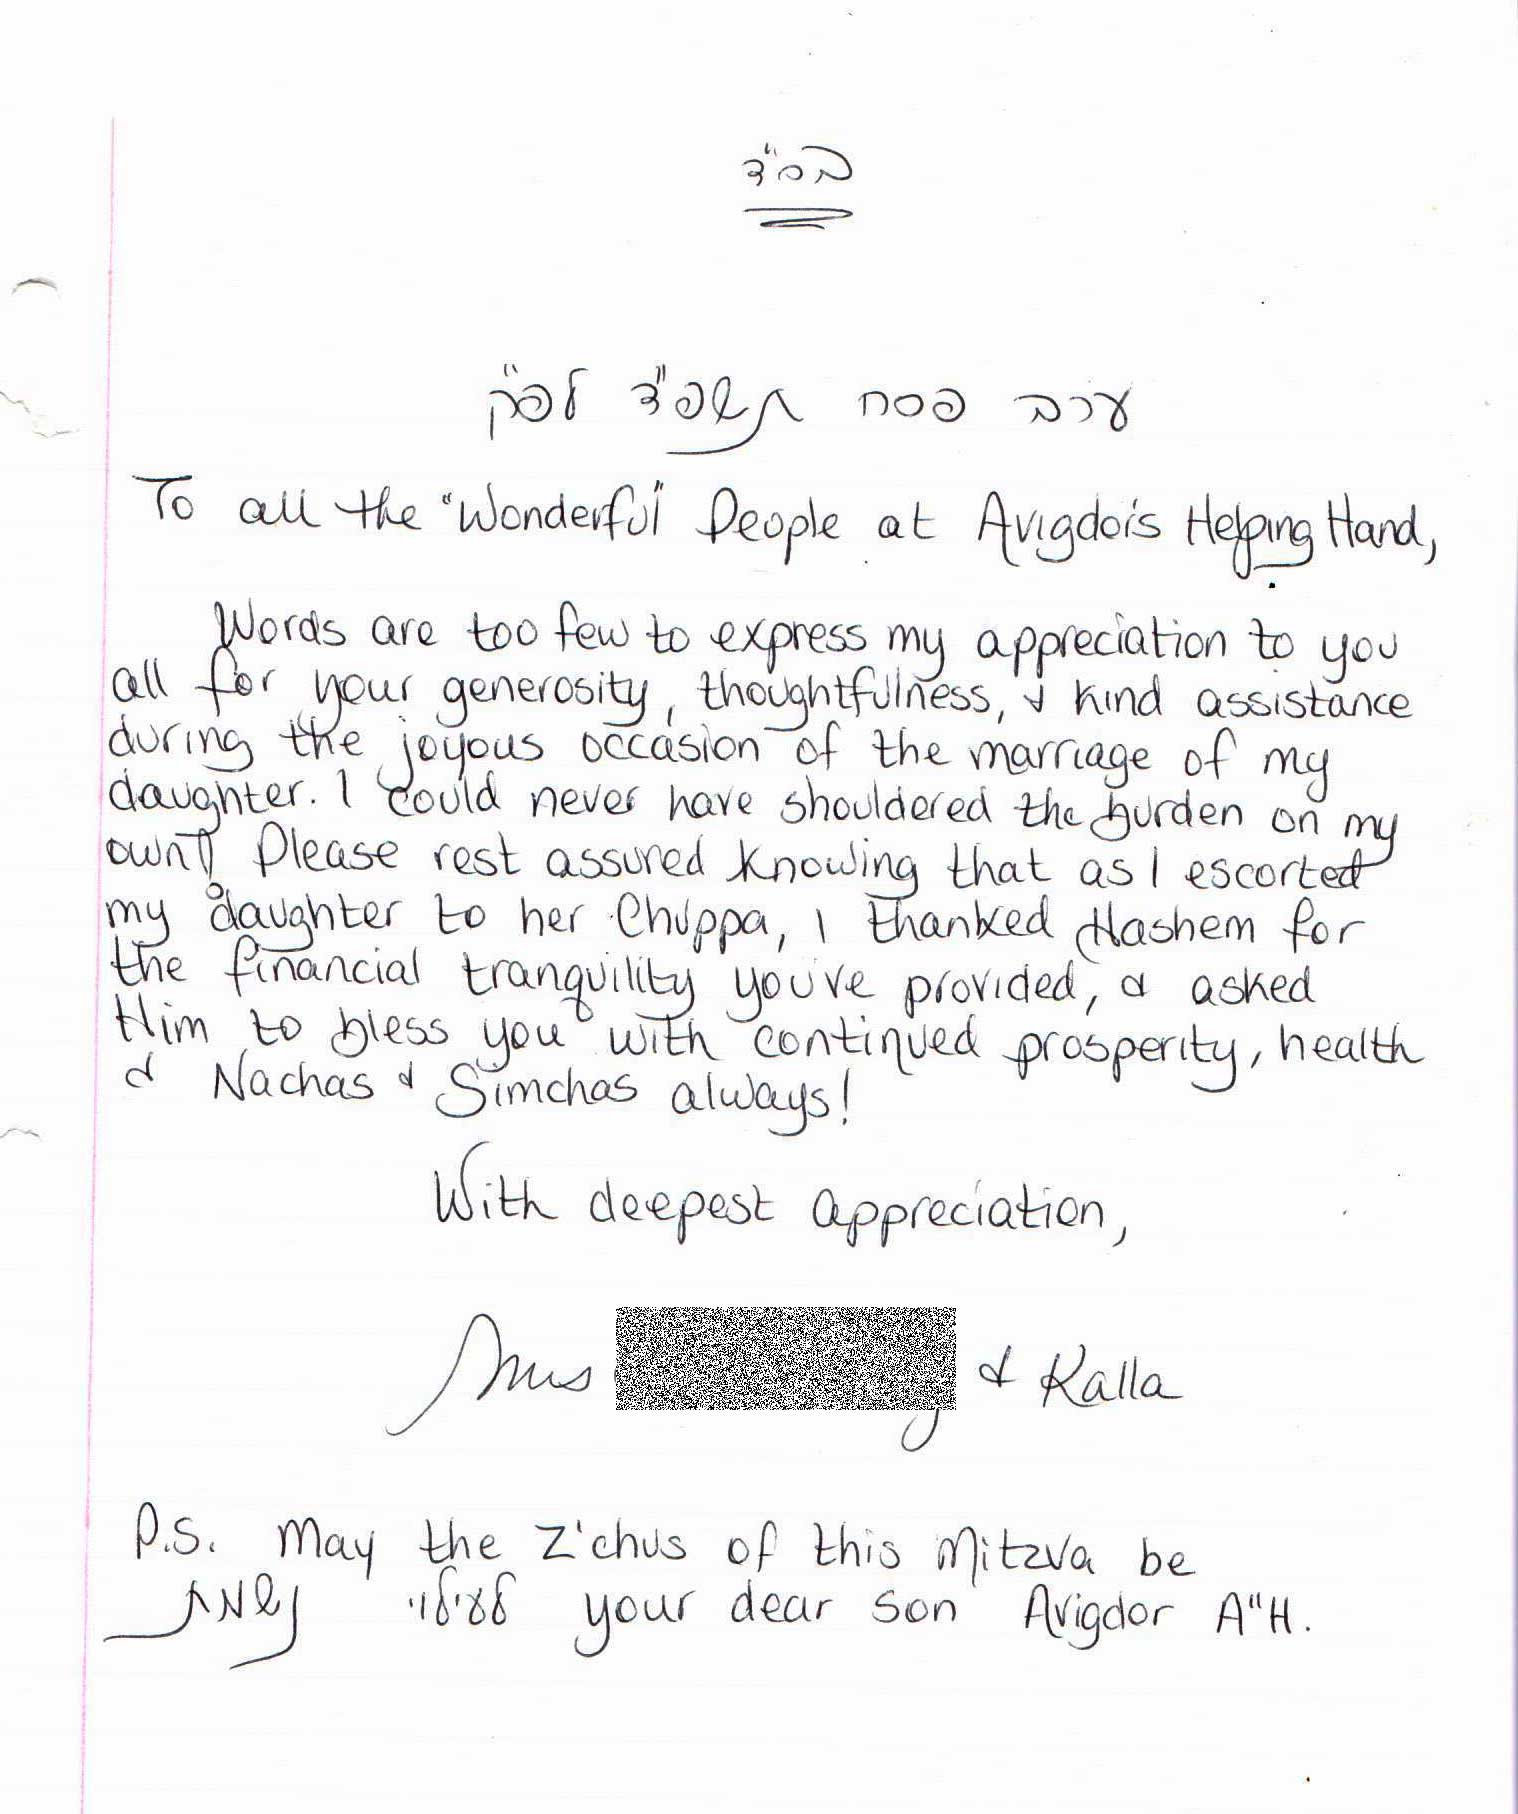 בס"ד
ערב פסח תשפ"ד לפ"ק
To all the "Wonderful" People at Avigdor's Helping Hand,
Words are too few to express my appreciation to you
all for your generosity, thoughtfulness, & kind assistance
during the joyous occasion of the marriage of my
daughter. I could never have shouldered the burden on my
own! Please rest assured knowing that as I escorted
my daughter to her Chuppa, I thanked Hashem for
the financial tranquility you've provided, & asked
Him to bless you with continued prosperity, health
& Nachas & Simchas always!
With deepest appreciation,
Mrs & Kalla
P.S. May the Z'chus of this Mitzva be
לעילוי נשמת your dear son Avigdor A"H.